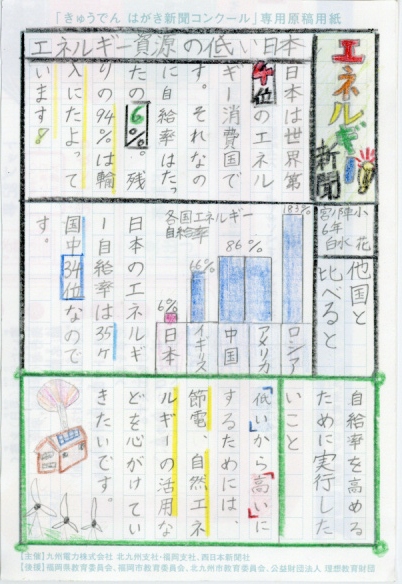 「きゅうでん はがき新聞コンクール」専用原稿用紙
エネルギー新聞
エネルギー資源の低い日本
日本は世界第
4位のエネル
ギー消費国で
す。それなの
に自給率はたっ
たの6%。残
りの94%は輪
入にたよって
います!
他国と
比べると
各国エネルギー
自給率
183%
ロシア
86%
アメリカ
中国
66%
イギリス
6%
日本
日本のエネルギ
ー自給率は35ヶ
国中34位なので
す。
自給率を高める
ために実行した
いこと
「低い」から「高い」に
するためには、
節電、自然エネ
ルギーの活用な
どを心がけてい
きたいです。
【主催】九州電力株式会社 北九州支社・福岡支社、西日本新聞社
【後援】福岡県教育委員会、福岡市教育委員会、北九州市教育委員会、公益財団法人 理想教育財団